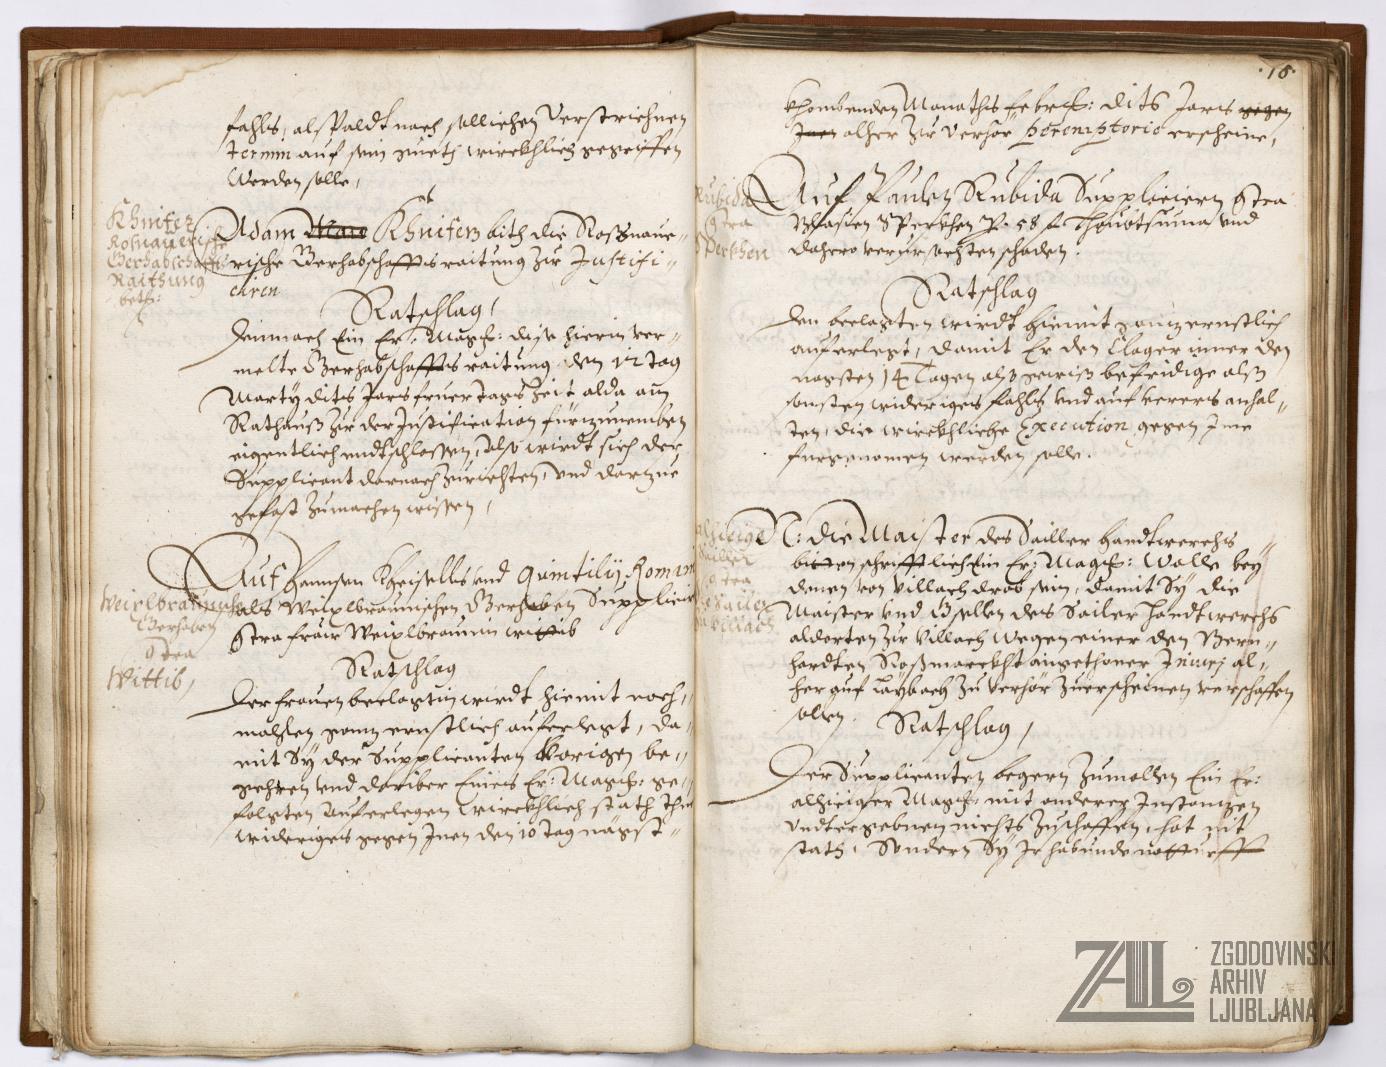 fahls, als Paldt nach sollichen verstrichnen
termin auf sein guets wirckhlich gegriffen
werden solle,
Khnifez
Rosnauerische
Gerhabschaffts
Raittung
betf:
Adam Khnifez bith die Rosznaue-
rische Gerhabschafftsraitung zur Justifi-
ciren
Ratschlag,
Demnach Ein Er: Mag: dise hierin ver-
melte Gerhabschafftsraitung den 12 tag
Marty dits Jars fruer tags Zeit alda am
Rathausz zu der Justification fürzunemben
eigentlich endtschlossen, Also wirdt sich der
Supplicant darnach zurichten, und dartzue
gefast zumachen wissen,
Weixlbraunische
Gerhaben
Contra
Wittib,
Auf Hannsen Kheisells und Quintilij Roman
als Weixlbraunischen Gerhaben Suppliciern
Contra fraw Weixlbraunin wittib
Ratschlag
Der frauen beclagtin wirdt hiemit noch-
mahlen ganz ernstlich auferlegt, da-
mit Sy der Supplicanten vorigen be-
gehren und dariber Eines Er: Mag: ge-
folgten Auferlegen wirckhlich stath thue
widriges gegen Inen den 10 tag nägst-
18.
khombenden Monaths Febr: dits Jars gegen
Inen alher zu verhör peremptorie erscheine,
Rubida
Contra
Sperkhen
Auf Paulen Rubida Suppliciern Contra
Sperkhen P. 58 f. Haubtsuma und
dahero verursachten schaden.
Ratschlag
Den beclagten wirdt hiemit ganz ernstlich
auferlegt, damit Er den Clager inner den
nagsten 14 Tagen alsz gewisz befridige alsz
sonsten widriges fahls und auf verers anhal-
ten, die wirckhliche Execution gegen Ime
furgenomen werden solle.
Sailler
Contra
die Sailer
zu Villach
N: die Maister des Sailler handtwerchs
bitten schrifftlich Ein Er: Mag: Wolle bey
denen von Villach drob sein, damit Sy die
Maister und Gsellen des Sailer handtwerchs
aldorten zu Villach wegen einer den Bern-
hardten Roszmarckht angethoner Iniurj al-
her auf Laybach zu verhör zuerscheinen verschaffen
sollen.
Ratschlag,
Der Supplicanten begern zumollen Ein Er:
alhieiger Mag: mit anderer Instantzen
undtergebnen nichts zuschaffen, hat nit
stath, Sondern Sy Ir habunde notturfft
ZAL
ZGODOVINSKI
ARHIV
LJUBLJANA